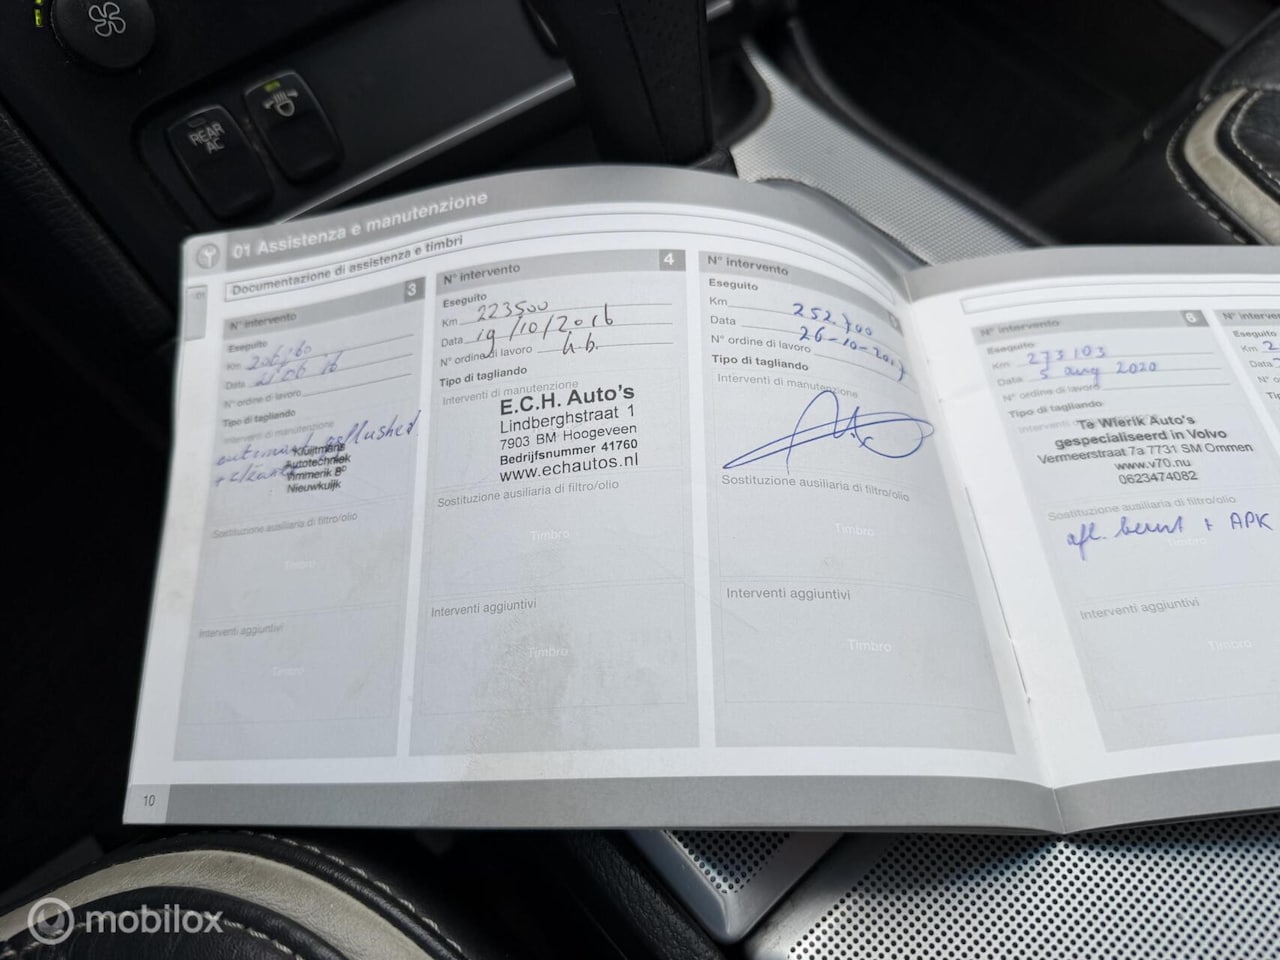 REAR
AC
01 Assistenza e manutenzione
Documentazione di assistenza e timbri
01
3
N° intervento
Eseguito
Km
Data 06 16
N° ordine di lavoro
Tipo di tagliando
Interventi di manutenzione
Kluijtmans
Autotechniek
Vimmerik 8
Nieuwkuijk
Sostituzione ausiliaria di filtro/olio
Timbro
Interventi aggiuntivi
Timbro
4
N° intervento
Eseguito
Km 223500
Data 19/10/2016
N° ordine di lavoro
Tipo di tagliando
Interventi di manutenzione
E.C.H. Auto's
Lindberghstraat 1
7903 BM Hoogeveen
Bedrijfsnummer 41760
www.echautos.nl
Sostituzione ausiliaria di filtro/olio
Timbro
Interventi aggiuntivi
Timbro
N° intervento
Eseguito
Km 252.700
Data 26-10-2017
N° ordine di lavoro
Tipo di tagliando
Interventi di manutenzione
Sostituzione ausiliaria di filtro/olio
Timbro
Interventi aggiuntivi
Timbro
6
N° intervento
Eseguito
Km 273103
Data 5 aug 2020
N° ordine di lavoro
Tipo di tagliando
Te Wierik Auto's
gespecialiseerd in Volvo
Vermeerstraat 7a 7731 SM Ommen
www.v70.nu
0623474082
Sostituzione ausiliaria di filtro/olio
afl. beurt + APK
Timbro
Interventi aggiuntivi
Timbro
N° interven
Eseguito
Km 2
Data
Tipo
10
mobilox